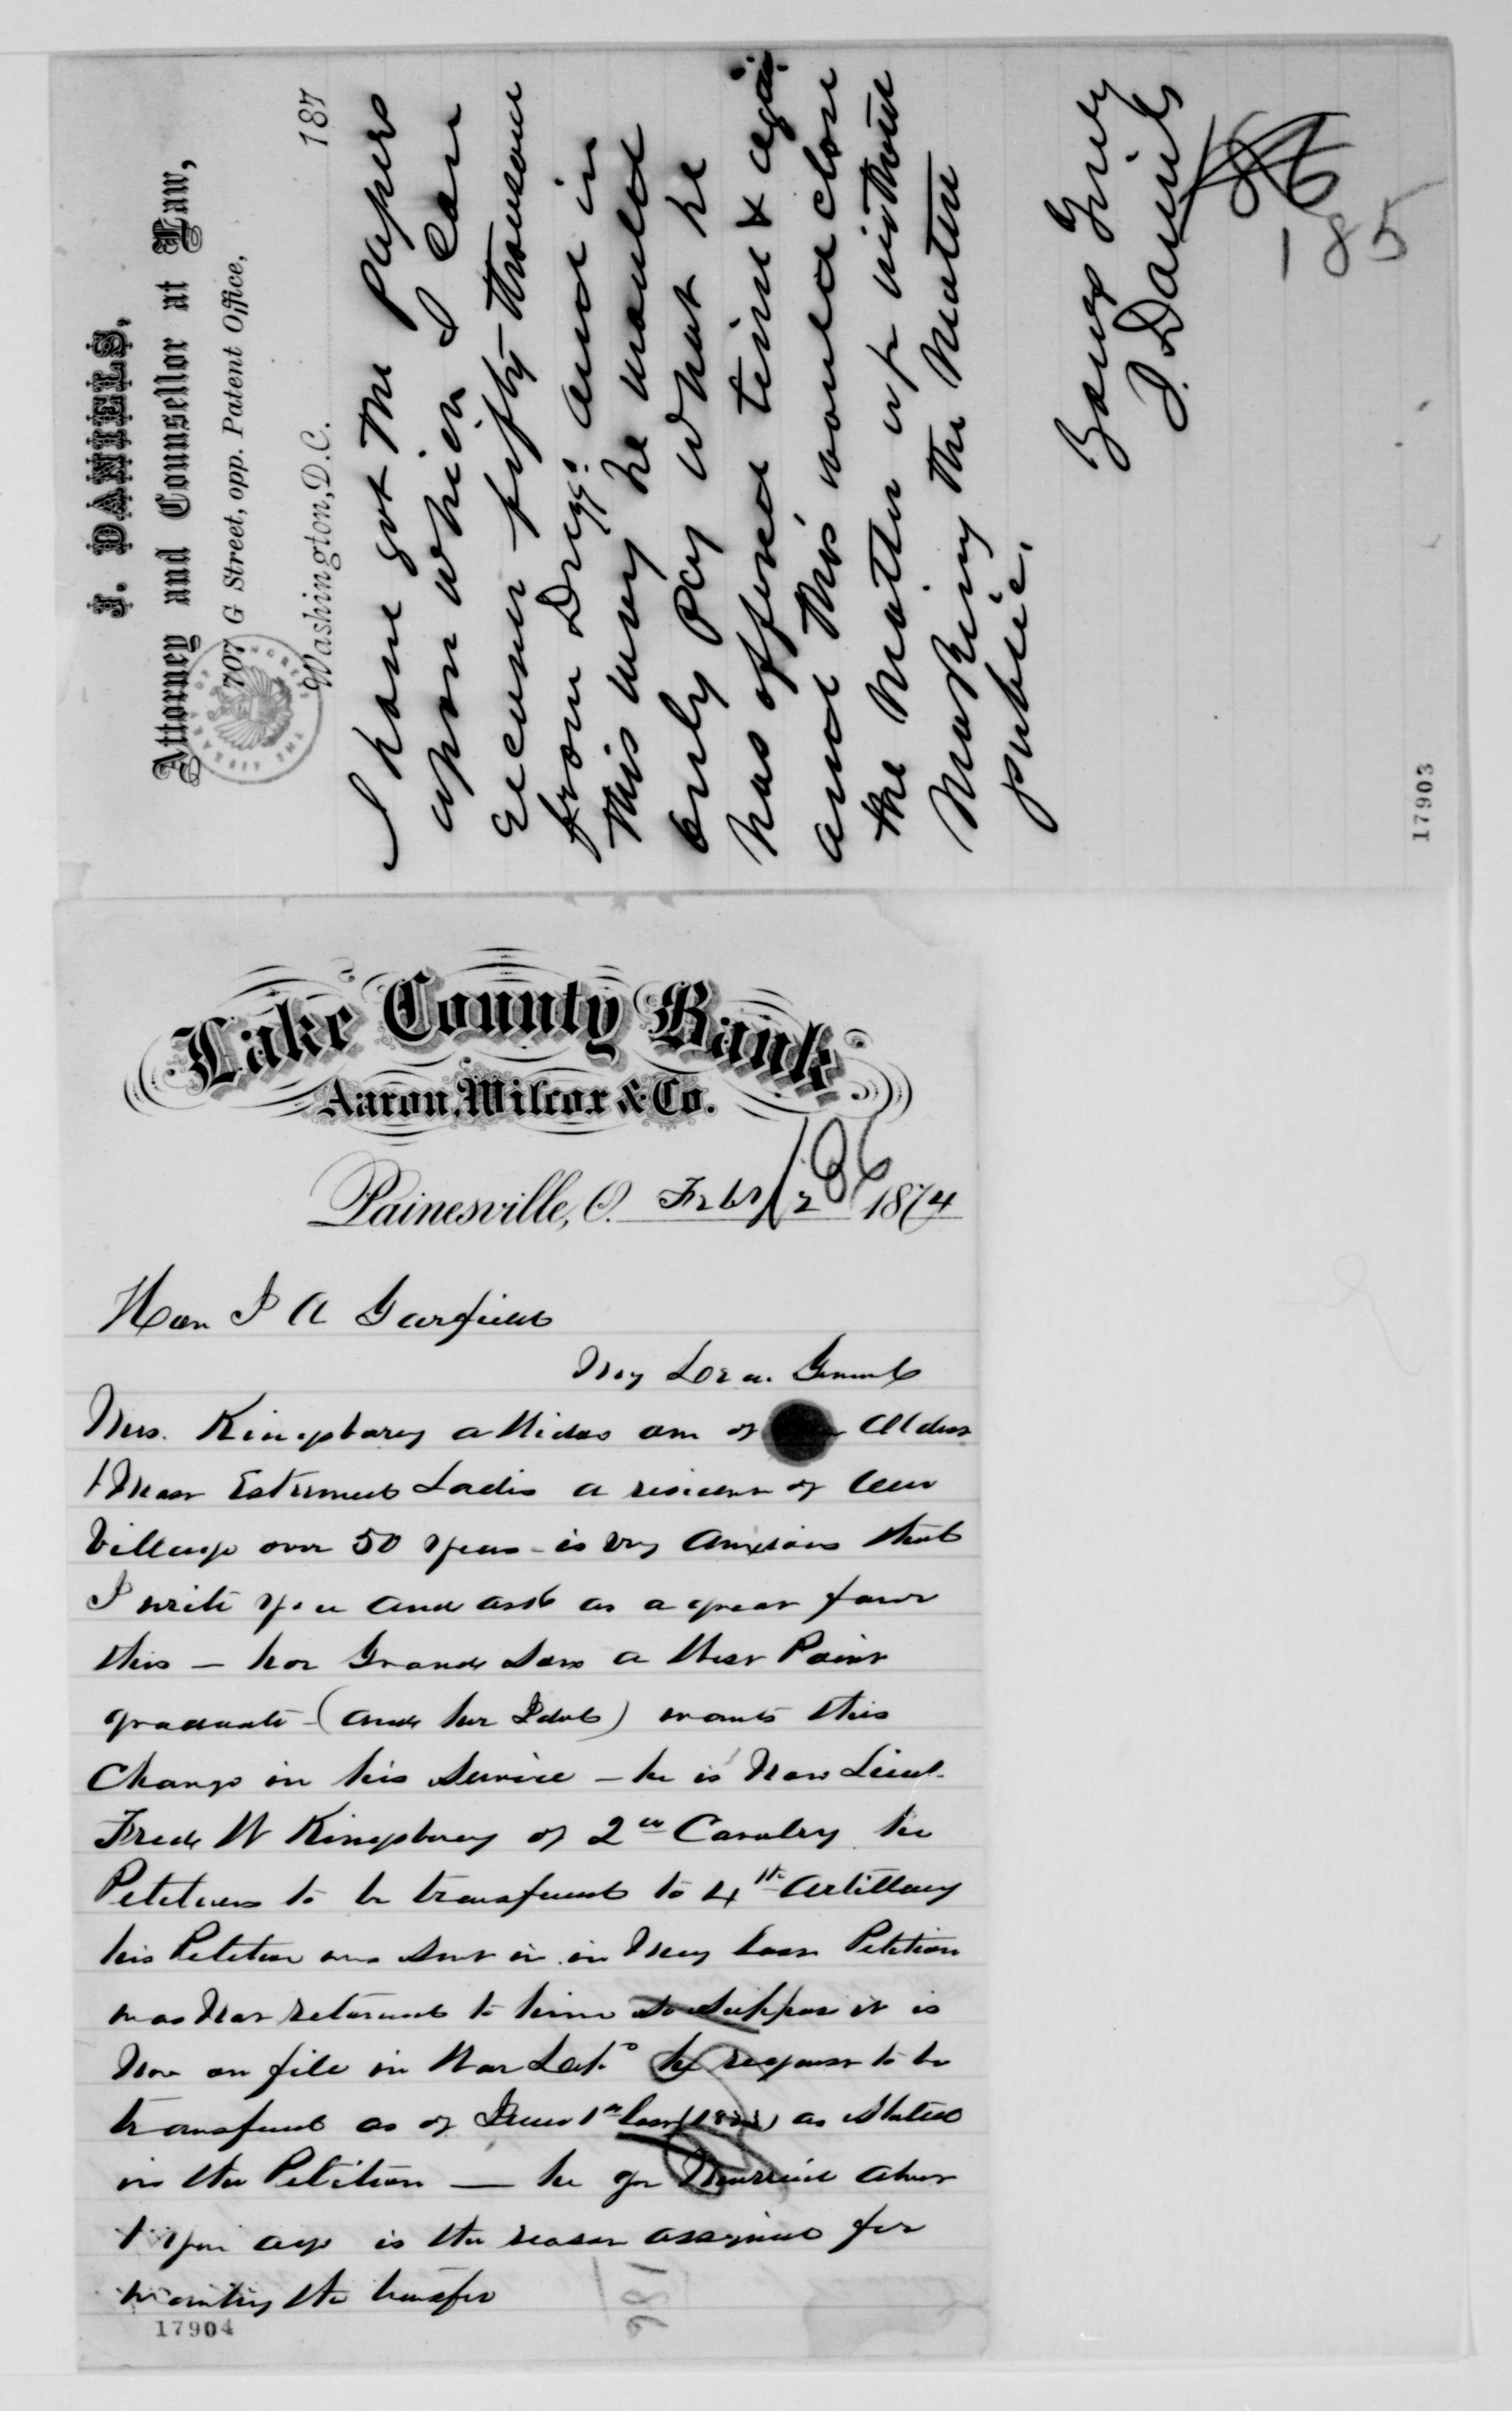 J. DANIELS,
Attorney and Counsellor at Law,
707 G Street, opp. Patent Office,
Washington, D.C. 187
I have got the papers
upon which I can
recover fifty thousand
from Driggs. and in
this way he would
only pay what he
has offered time & again
and this would close
the matter up without
making the matter
public.
Yours Truly
J. Daniels
185
17903
Lake County Bank
Aaron, Wilcox & Co.
186
Painesville, O. Feby 2 1874
Hon J A Garfield
My Dear General
Mrs. Kingsbury a Widow one of our Oldest
& Most Esteemed Ladies a resident of our
Village over 50 years - is very anxious that
I write you and ask as a great favor
this — her Grand Son a West Point
graduate - (and her Idol) wants this
Change in his Service - he is Now Lieut.
Fred W Kingsbury of 2nd Cavalry he
Petitions to be transferred to 4th Artillery
his Petition was Sent in in May last Petition
was Not returned to him So Suppose it is
Now on file in War Dept. he request to be
transferred as of June 1st last (1873) as Stated
in the Petition — he got Married about
1 year ago is the reason assigned for
wanting the transfer
17904
186